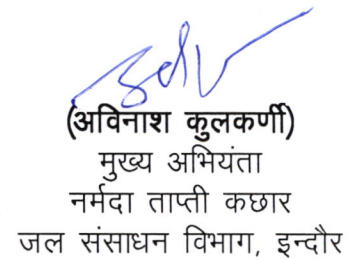 (अविनाश कुलकर्णी)
मुख्य अभियंता
नर्मदा ताप्ती कछार
जल संसाधन विभाग, इन्दौर